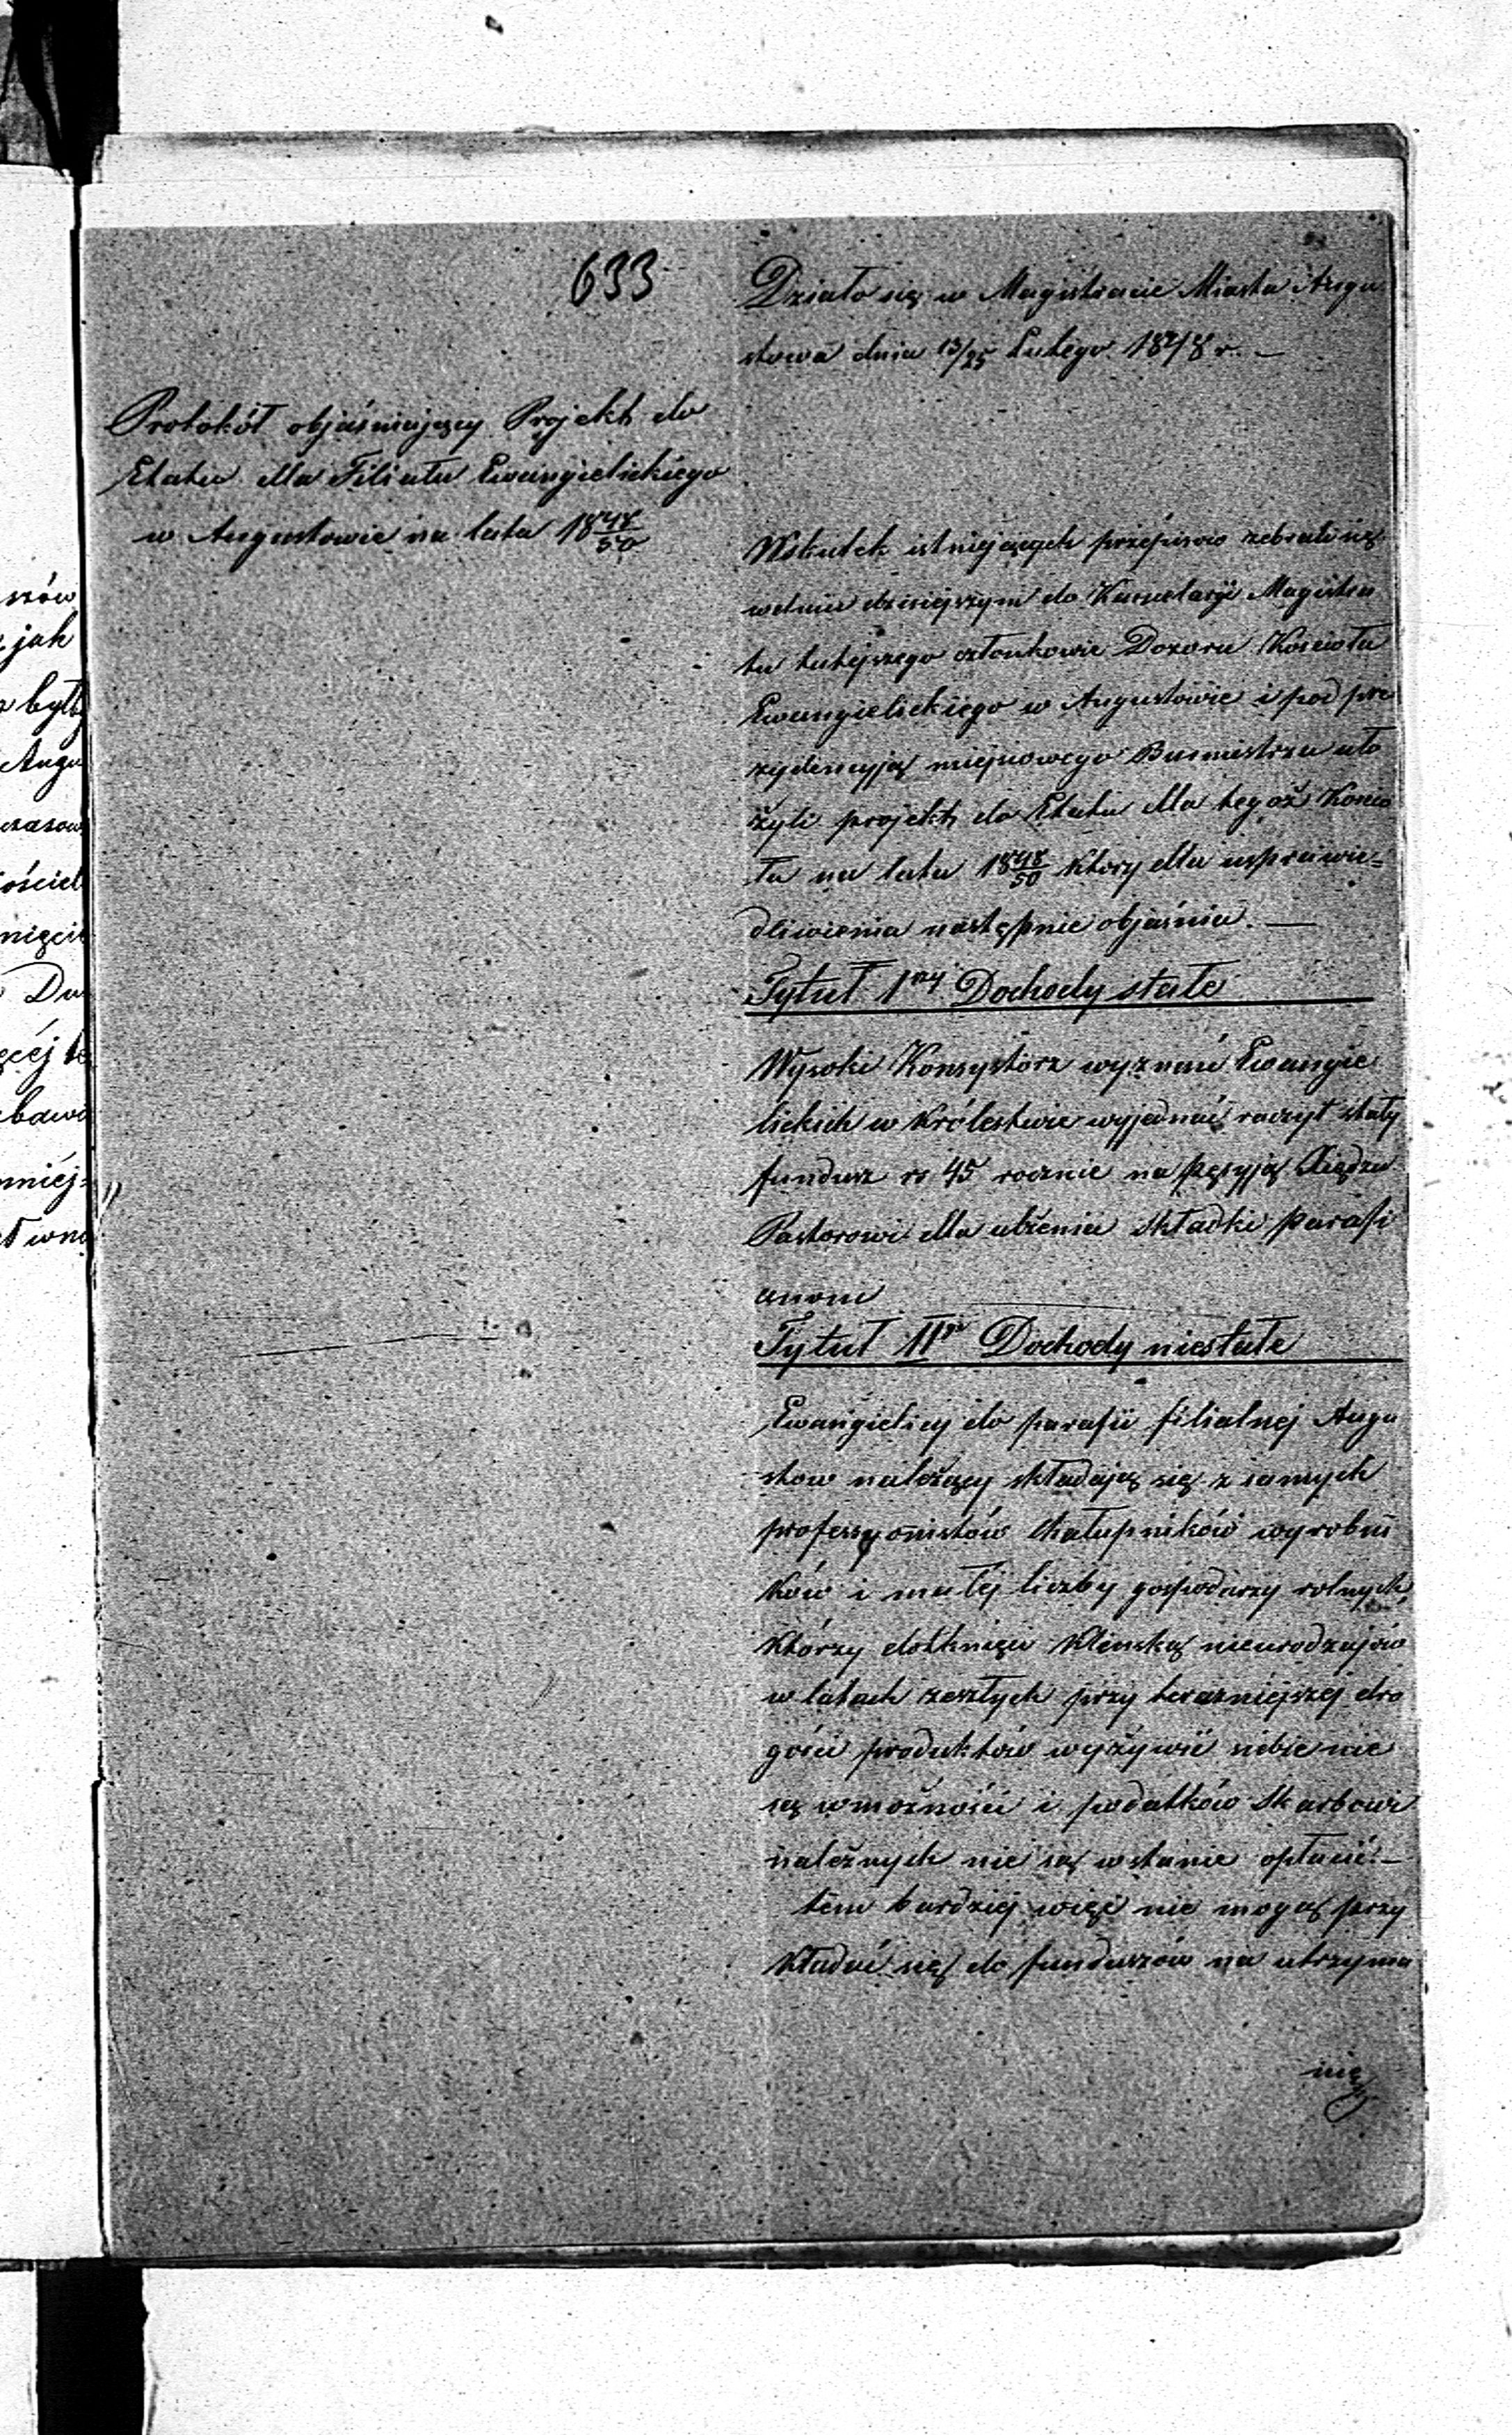 633
Protokół objaśniający Projekt do
Etatu dla Filiału Ewangielickiego
w Augustowie na lata 18 48/50
Działo się w Magistracie Miasta Augu
stowa dnia 13/25 Lutego 1848 r. —
Wskutek istniejących przepisów zebrali się
wdniu dzisiejszym do Kancelaryi Magistra
tu tutejszego członkowie Dozoru Kościoła
Ewangielickiego w Augustowie i pod pre
zydencyją miejscowego Burmistrza uło
żyli projekt do Etatu dla tegoż Kościo
ła na lata 18 48/50 który dla usprawie=
dliwienia następnie objaśnia. —
Tytuł 1szy Dochody stałe
Wysoki Konsystorz wyznań Ewangie
lickich w Królestwie wyjednać raczył stały
fundusz rs 45 rocznie na pęsyją Xiędzu
Pastorowi dla ulżenia składki parafi
anom
Tytuł IIgi Dochody niestałe
Ewangielicy do parafii filialnej Augu
stow należący składają się z samych
professyonistów chałupników wyrobni
ków i małej liczby gospodarzy rolnych,
którzy dotknięci klęnską nieurodzajów
w latach zeszłych przy teraźniejszej dro
gości produktów wyżywić siebie nie
są wmożności i podatków Skarbowi
należnych nie są wstanie opłacić. —
tém bardziej więc nie mogą przy
kładać się do funduszów na utrzyma
nie
szów
jak
był
Augu
czasow
ościel
nięcie
Do
ęcéj
bawi
mniéj=